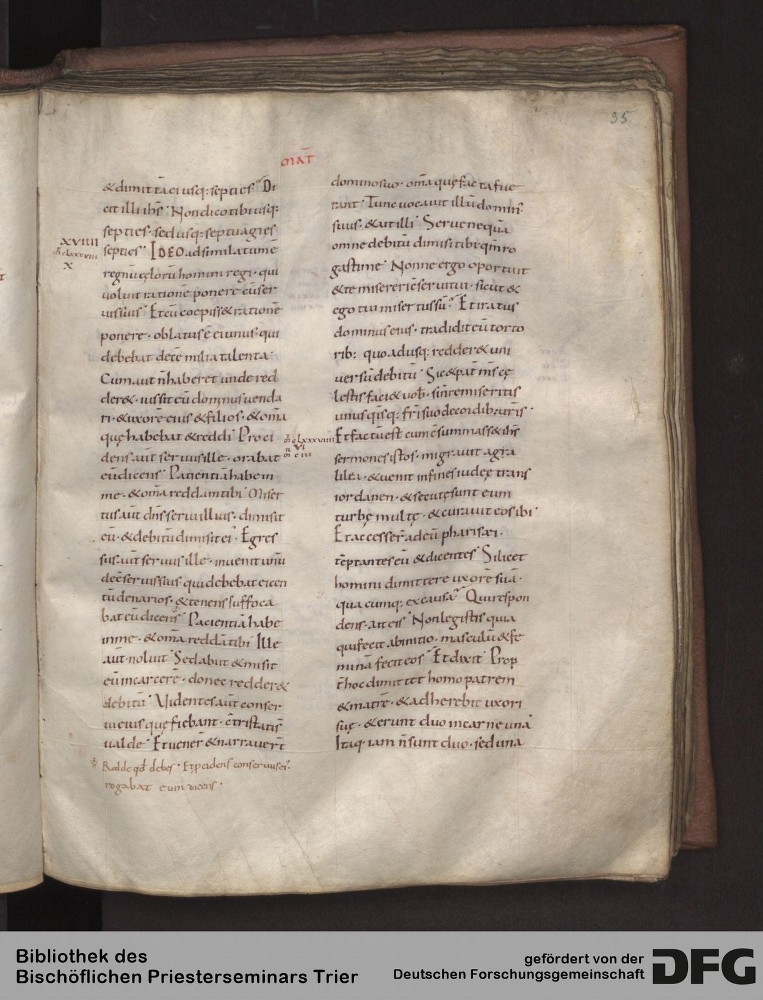 35
MAT
& dimittā ei usq: septies Di
cit illi ihs Non dico tibi usq:
septies · sed usq: septuagies
septies IDEO adsimilatum ē
regnū cęlorū homini regi · qui
uoluit rationē ponere cū ser
uis suis Et cū coepiss& rationē
ponere · oblatus ē ei unus · qui
debebat decē milia talenta ·
Cum aut n̄ haber& unde red
der& · iussit eū dominus uenda
ri · & uxorē eius & filios · & om̄a
quę habebat & reddi Proci
dens aut seruus ille · orabat
eū dicens Patientiā habe in
me · & om̄a reddam tibi Miser
tus aut dn̄s serui illius · dimisit
eū · & debitū dimisit ei · Egres
sus aut seruus ille · inuenit unū
de cōseruis suis · qui debebat ei cen
tū denarios · & tenens suffoca
bat eū dicens Pacientiā habe
in me · & om̄a reddā tibi Ille
aut noluit Sed abiit & misit
eū in carcerē · donec redder&
debitū Videntes aut conser
ui eius que fiebant · cōtristati st̄
ualde Et uener & narrauer̄t
Redde qd debes · Et procidens conseruus ei·
rogabat eum dicens ·
XVIIII
X
domino suo · om̄a quę facta fue
rant · Tunc uocauit illū domin
suus · & ait illi Serue nequā
omne debitū dimisi tibi qm̄ ro
gasti me Nonne ergo oportuit
& te misereri cōserui tui · sicut &
ego tui misertus sū Et iratus
dominus eius · tradidit eū torto
rib: quo adusq: redder& uni
uersū debitū Sic & pat̄ m̄s cę
lestis faci& uob̄ · si n̄ remiseritis
unus qisq: fr̄i suo de cordib: ur̄is
Et factū est cum cōsummass& ihs
sermones istos · migrauit a gali
lea · & uenit in fines iudęę trans
iordanen · & secutę sunt eum
turbę multę · & curauit eos ibi
Et accesser̄ ad eū pharisei ·
tēptantes eū & dicentes Si licet
homini dimittere uxorē suā ·
qua cumq: ex causa Qui respon
dens · ait eis Non legistis quia
qui fecit ab initio · masculū & fe
minā fecit eos Et dixit Prop
t hoc dimittet homo patrem
& matrē · & adherebit uxori
suę · & erunt duo in carne una
Itaq: iam n̄ sunt duo · sed una
Bibliothek des
Bischöflichen Priesterseminars Trier
gefördert von der
Deutschen Forschungsgemeinschaft
DFG